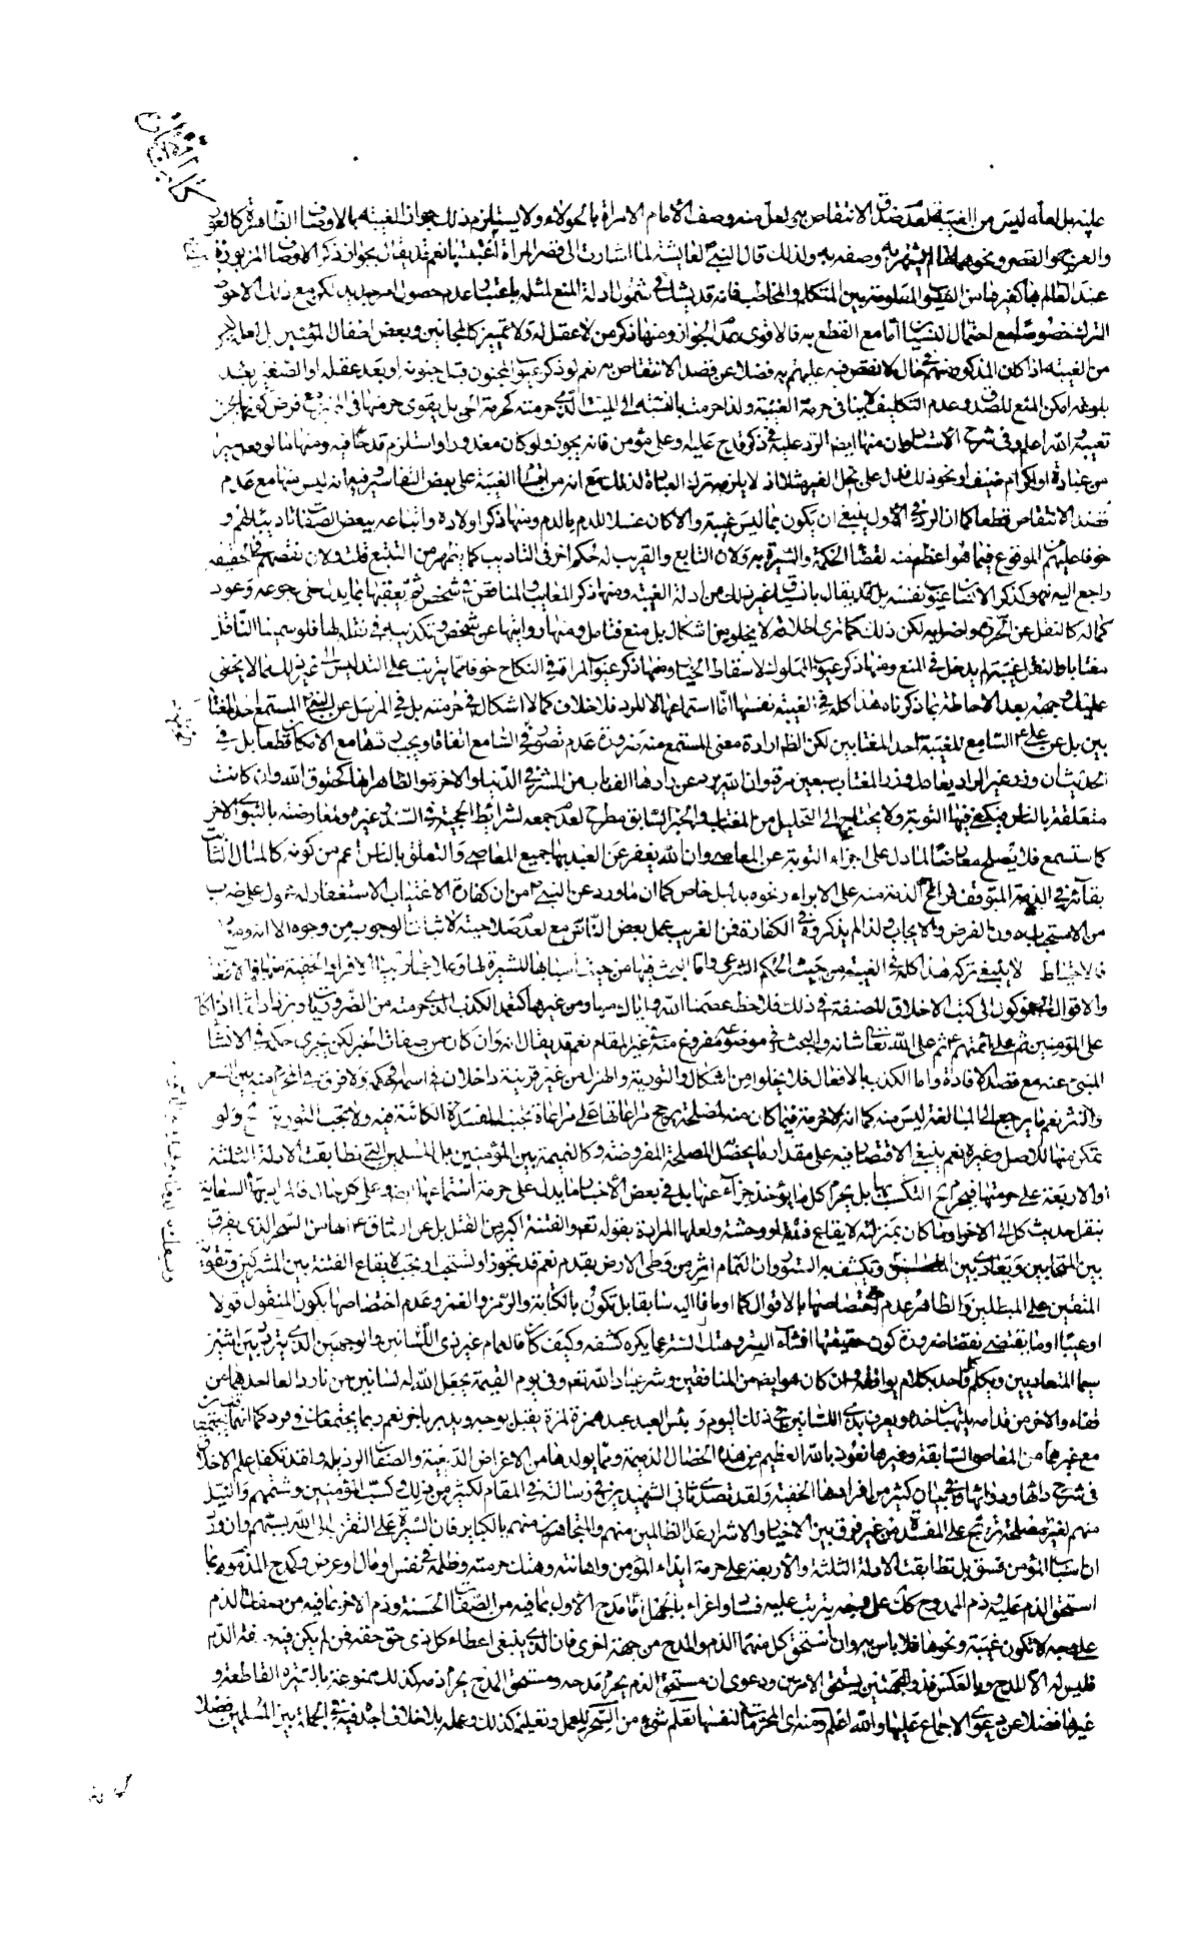 عليه بل لعله ليس من الغيبة لعدم صدق الانتقاص به ولعل منه وصف الأمام الامرأة بالحولاء ولا يستلزم ذلك جواز الغيبة بالاوصاف الظاهرة كالعور
والعرج والقصر ونحوها وصفه به ولذلك قال النبي لعايشة لما اشارت الى قصر المراة اغتبتها نعم قد يقال بجواز ذكر الاوصاف المزبورة
عند العالم بها كغيرها من المعلومة بين المتكلم والمخاطب فانه قد يشك في شمول ادلة المنع لمثله باعتبار عدم حصول امر جديد لكن مع ذلك الاحوط
الترك خصوصا مع احتمال النسيان أما مع القطع به فالاقوى عدم الجواز ومنها ذكر من لا عقل له ولا تمييز كالمجانين وبعض اطفال المؤمنين بل لعله ليس
من الغيبة اذا كان المذكور منهم في حال لا نقص فيه عليهم به فضلا عن قصد الانتقاص به نعم لو ذكر عيوب المجنون قبل جنونه او بعد عقله او الصغير بعد
بلوغه امكن المنع للصدق وعدم التكليف لا ينافي حرمة الغيبة ولذا حرمت بالنسبة الى الميت الذي حرمته كحرمة الحي بل يقوى حرمتها في المميز مع فرض كونها لمحض
تعييبه والله اعلم وفي شرح الاستاد وان منها ايضا الرد عليه في ذكر قادح عليه وعلى مؤمن فانه يجوز ولو كان معذورا واستلزم قدحا فيه ومنها ما لو
من عبادة او اكرام ضيف او نحو ذلك فدل على بخل الغير مثلا اذ لا يلزمه ترك العبادة لذلك مع انه من الغيبة على بعض التفاسير وفيه انه ليس منها مع عدم
قصد الانتقاص قطعا كما ان الرد في الأول ينبغي ان يكون بما ليس غيبة والا كان غسلا للدم بالدم ومنها ذكر اولاده واتباعه ببعض الصفات تاديبا لهم و
خوفا عليهم من الوقوع فيما هو اعظم منه لقضاء الحكمة والسيرة به ولان التابع والقريب له حكم اخر في التاديب كما يظهر من التتبع قلت ولان نقصهم في الحقيقة
راجع اليه فهو كذكر الانسان عيوب نفسه بل قد يقال بانسياق غير ذلك من ادلة الغيبة ومنها ذكر المعايب والمناقص في شخص ثم تعقيبها بما يدل على رجوعه وعود
كماله كالنقل عن الحر واضرابه لكن ذلك كما ترى اطلاقه لا يخلو من اشكال بل منع فتامل ومنها روايتها عن شخص وتكذيبه في نقله لها فلو سمينا الناقل
مغتابا بالنقل لم يدخل في المنع ومنها ذكر عيوب المملوك لاسقاط الخيار ومنها ذكر عيوب المراة في النكاح خوفا مما يترتب على التدليس الى غير ذلك مما لا يخفى
عليك وجهه بعد الاحاطة بما ذكرنا هذا كله في الغيبة نفسها أما استماعها لا للرد فلا خلاف كما لا اشكال في حرمته بل في المرسل عن النبي المستمع احد المغتا
بين بل عن علي السامع للغيبة احد المغتابين لكن الظ ارادة معنى المستمع منه ضرورة عدم تصور في السامع اتفاقا ويجب ردها مع الامكان قطعا بل في
الحديث ان وزر غير الراد يعادل وزر المغتاب سبعين مرة وان الله يرد عن رادها الف باب من الشر في الدنيا والاخرة والظاهر انها كحقوق الله وان كانت
متعلقة بالناس فيكفي فيها التوبة ولا يحتاج الى التحليل من المغتاب والخبر السابق مطرح لعدم جمعه لشرايط الحجية في السند وغيره ومعارضته بالنبوي الاخر
كما ستسمع فلا يصلح معارضا لما دل على اجزاء التوبة عن المعاصي وان الله يغفر عن العبد بها جميع المعاصي والتعلق بالناس اعم من كونه كالمال الثابت
بقائه في الذمة المتوقف فراغ الذمة منه على الابراء ونحوه بدليل خاص كما ان ما ورد عن النبي من ان كفارة الاغتياب الاستغفار له محمول على ضرب
من الاستحباب دون الفرض والايجاب ولذا لم يذكروه في الكفارة فمن الغريب عمل بعض الناس مع لعدم صلاحيته لاثبات الوجوب من وجوه الا انه
فالاحتياط لا ينبغي تركه هذا كله في الغيبة من حيث الحكم الشرعي واما البحث فيها من حيث اسبابها المسيرة لها وعلاجها الافراد الخفية منها في الافعال
والاقوال فهو موكول الى كتب الاخلاق المصنفة في ذلك فلاحظ عصمنا الله واياك منها ومن غيرها كتعمد الكذب الذي حرمته من الضروريات ويزداد اثما اذا كان
على المؤمنين ثم على أئمتهم ثم على الله تعالى شانه والبحث في موضوعه مفروغ منه في غير المقام نعم قد يقال انه وان كان من صفات الخبر لكن يجري حكمه في الانشا
المنبئ عنه مع قصد الافادة واما الكذب بالافعال فلا يخلوا من اشكال والتورية والهزل من غير قرينة داخلان في اسمه او حكمه ولا فرق في المحرم منه بين الشعر
والنثر نعم ما يرجع الى المبالغة ليس منه كما انه لا حرمة فيما كان منه لمصلحة يرجح مراعاتها على مراعاة تجنب المفسدة الكائنة فيه ولا تجب التورية ولو
تمكن منها للاصل وغيره نعم ينبغي الاقتصار فيه على مقدار ما يحصل المصلحة المفروضة وكالنميمة بين المؤمنين بل المسلمين التي تطابقت الادلة الثلثة
او الاربعة على حرمتها فيحرم ح التكسب بها بل يحرم كل ما يؤخذ جزاء عنها بل في بعض الأخبار ما يدل على حرمة استماعها ايضا وعلى كل حال فالمراد بها السعاية
بنقل حديث كل الى الاخر او ما كان بمنزلته لايقاع فتنة او وحشة ولعلها المرادة بقوله تعالى والفتنة اكبر من القتل بل عن انها من السحر الذي يفرق
بين المتحابين ويعادى بين ويكشف به الستور وان النمام اشر من وطئ الارض بقدم نعم قد تجوز او تستحب او تجب لايقاع الفتنة بين المشركين وتقوية
المتقين على المبطلين والظاهر عدم اختصاصها بالاقوال كما اومأنا اليه سابقا بل تكون بالكتابة والرمز والغمز وعدم اختصاصها بكون المنقول قولا
او عيبا او ما يقتضى نقصا ضرورة كون حقيقتها افشاء السر وهتك الستر عما يكره كشفه وكيف كان فالنمام غير ذي اللسانين والوجهين الذي يتردد بين اثنين
سيما المتعاديين ويكلم كل واحد بكلام يوافقه وان كان هو ايضا من المنافقين وشر عباد الله تعالى وفي يوم القيمة يجعل الله له لسانين من نار دالعا احدهما من
قفاه والاخر من قدامه يلتهبان خده ويعرف بذي اللسانين في ذلك اليوم وبئس العبد عبد همزة لمزة يقبل بوجه ويدبر باخر نعم ربما يجتمعان في فرد كما انها تجتمع
مع غيرها من المعاصي السابقة وغيرها نعوذ بالله العظيم من هذه الخصال الذميمة ومما يولدها من الاغراض الدنية والصفات الرذيلة ولقد تكفل علم الاخلاق
في شرح دائها ودوائها وفي بيان كثير من افرادها الخفية ولقد تصدى ثاني الشهيدين في رسالته في المقام لكثير من ذلك وكسب المؤمنين وشتمهم والنيل
منهم لغير مصلحة ترجح على المفسدة من غير فرق بين الاخيار والاشرار عدا الظالمين منهم والمتجاهرين منهم بالكبائر فان السيرة على التقرب الى الله بسبهم وان ورد
ان سباب المؤمن فسوق بل تطابقت الادلة الثلثة والأربعة على حرمة ايذاء المؤمن واهانته وهتك حرمته وظلمه في نفس او مال او عرض وكمدح المذموم بما
استحق الذم عليه وذم الممدوح كك على وجه يترتب عليه فساد او اغراء بالجهل أما مدح الأول بما فيه من الصفات الحسنة وذم الاخر بما فيه من صفات الذم
على وجه لا تكون غيبة ونحوها فلا باس به وان استحق كل منهما الذم والمدح من جهة اخرى فان الذي ينبغي اعطاء كل ذي حق حقه فمن لم يكن فيه صفة الذم
فليس له الا المدح وبالعكس فذو الجهتين يستحق الامرين ودعوى ان مستحق الذم يحرم مدحه ومستحق المدح يحرم ذمه كذلك ممنوعة بالسيرة القاطعة و
غيرها فضلا عن دعوى الاجماع عليها والله اعلم ومنه اى المحرمات لنفسها تعلم شيء من السحر للعمل وتعليمه كذلك وعمله بلا خلاف اجده فيه في الجملة بين المسلمين فضلا